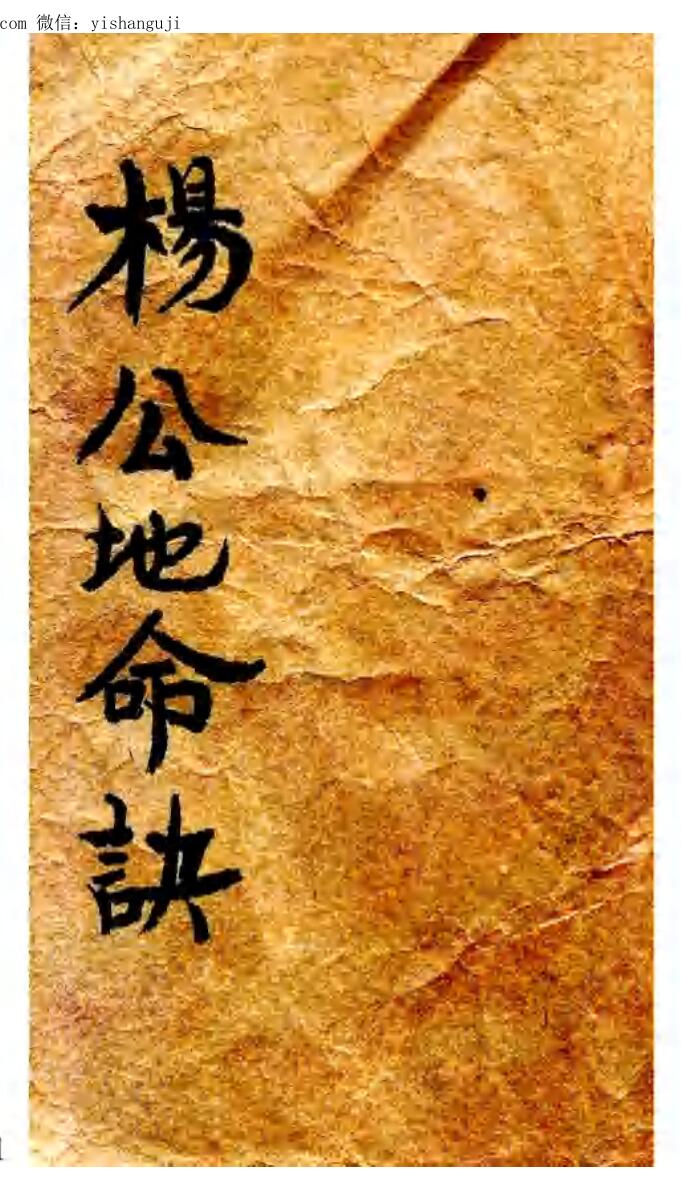 com 微信：yishanguji
楊公地命訣